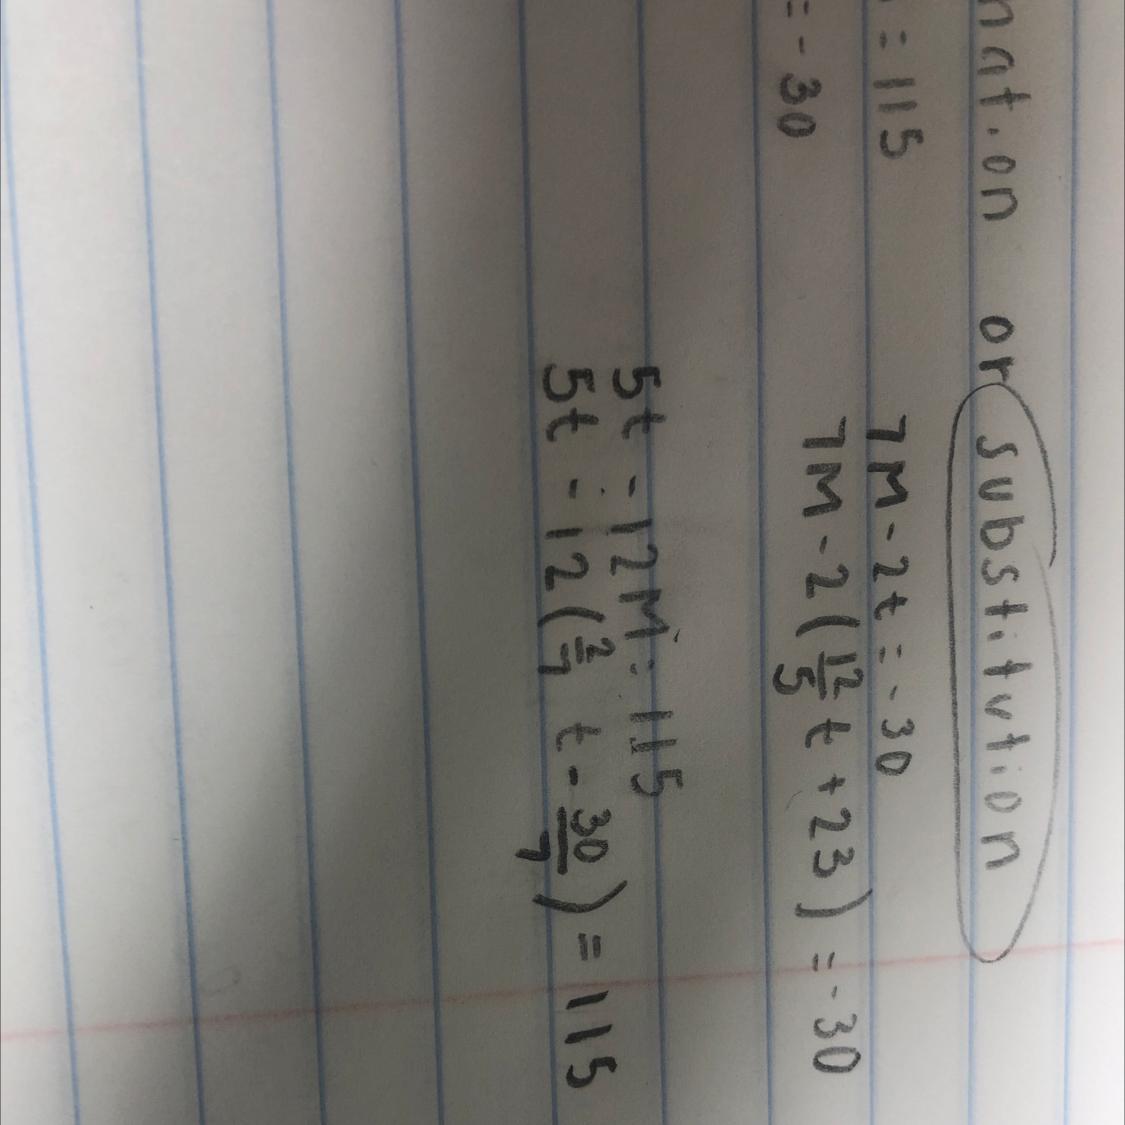 nat.on or substitution
= 115 7M - 2t = -30
= - 30 7M - 2(12/5 t + 23) = -30
5t - 12M = 115
5t - 12(2/7 t - 30/7) = 115